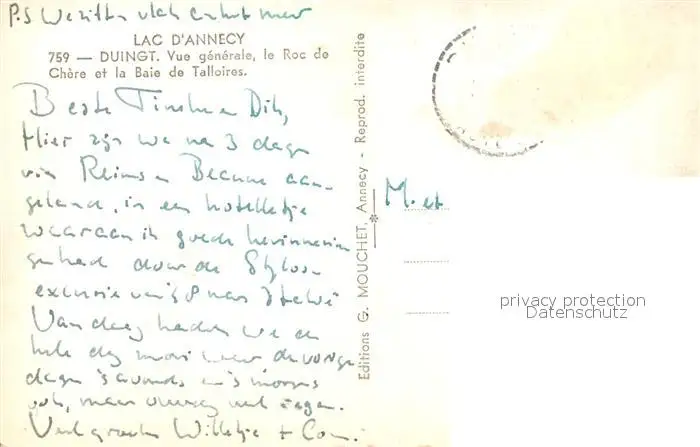 P.S We zitten vlak aan het meer
LAC D'ANNECY
759 — DUINGT. Vue générale, le Roc de
Chère et la Baie de Talloires.
Beste Dik,
Hier zijn we na 3 dagen
via Reims Beaune aan-
geland, in een hotelletje
waaraan ik goede herinneringen
gehad door de
excursie van '58 naar Italië
Vandaag hadden we een
hele dag mooi weer de vorige
dagen 's avonds en 's morgens
ook, maar regen.
Veel groeten Willetje + Com.
Editions G. MOUCHET, Annecy - Reprod. interdite
M. et
privacy protection
Datenschutz